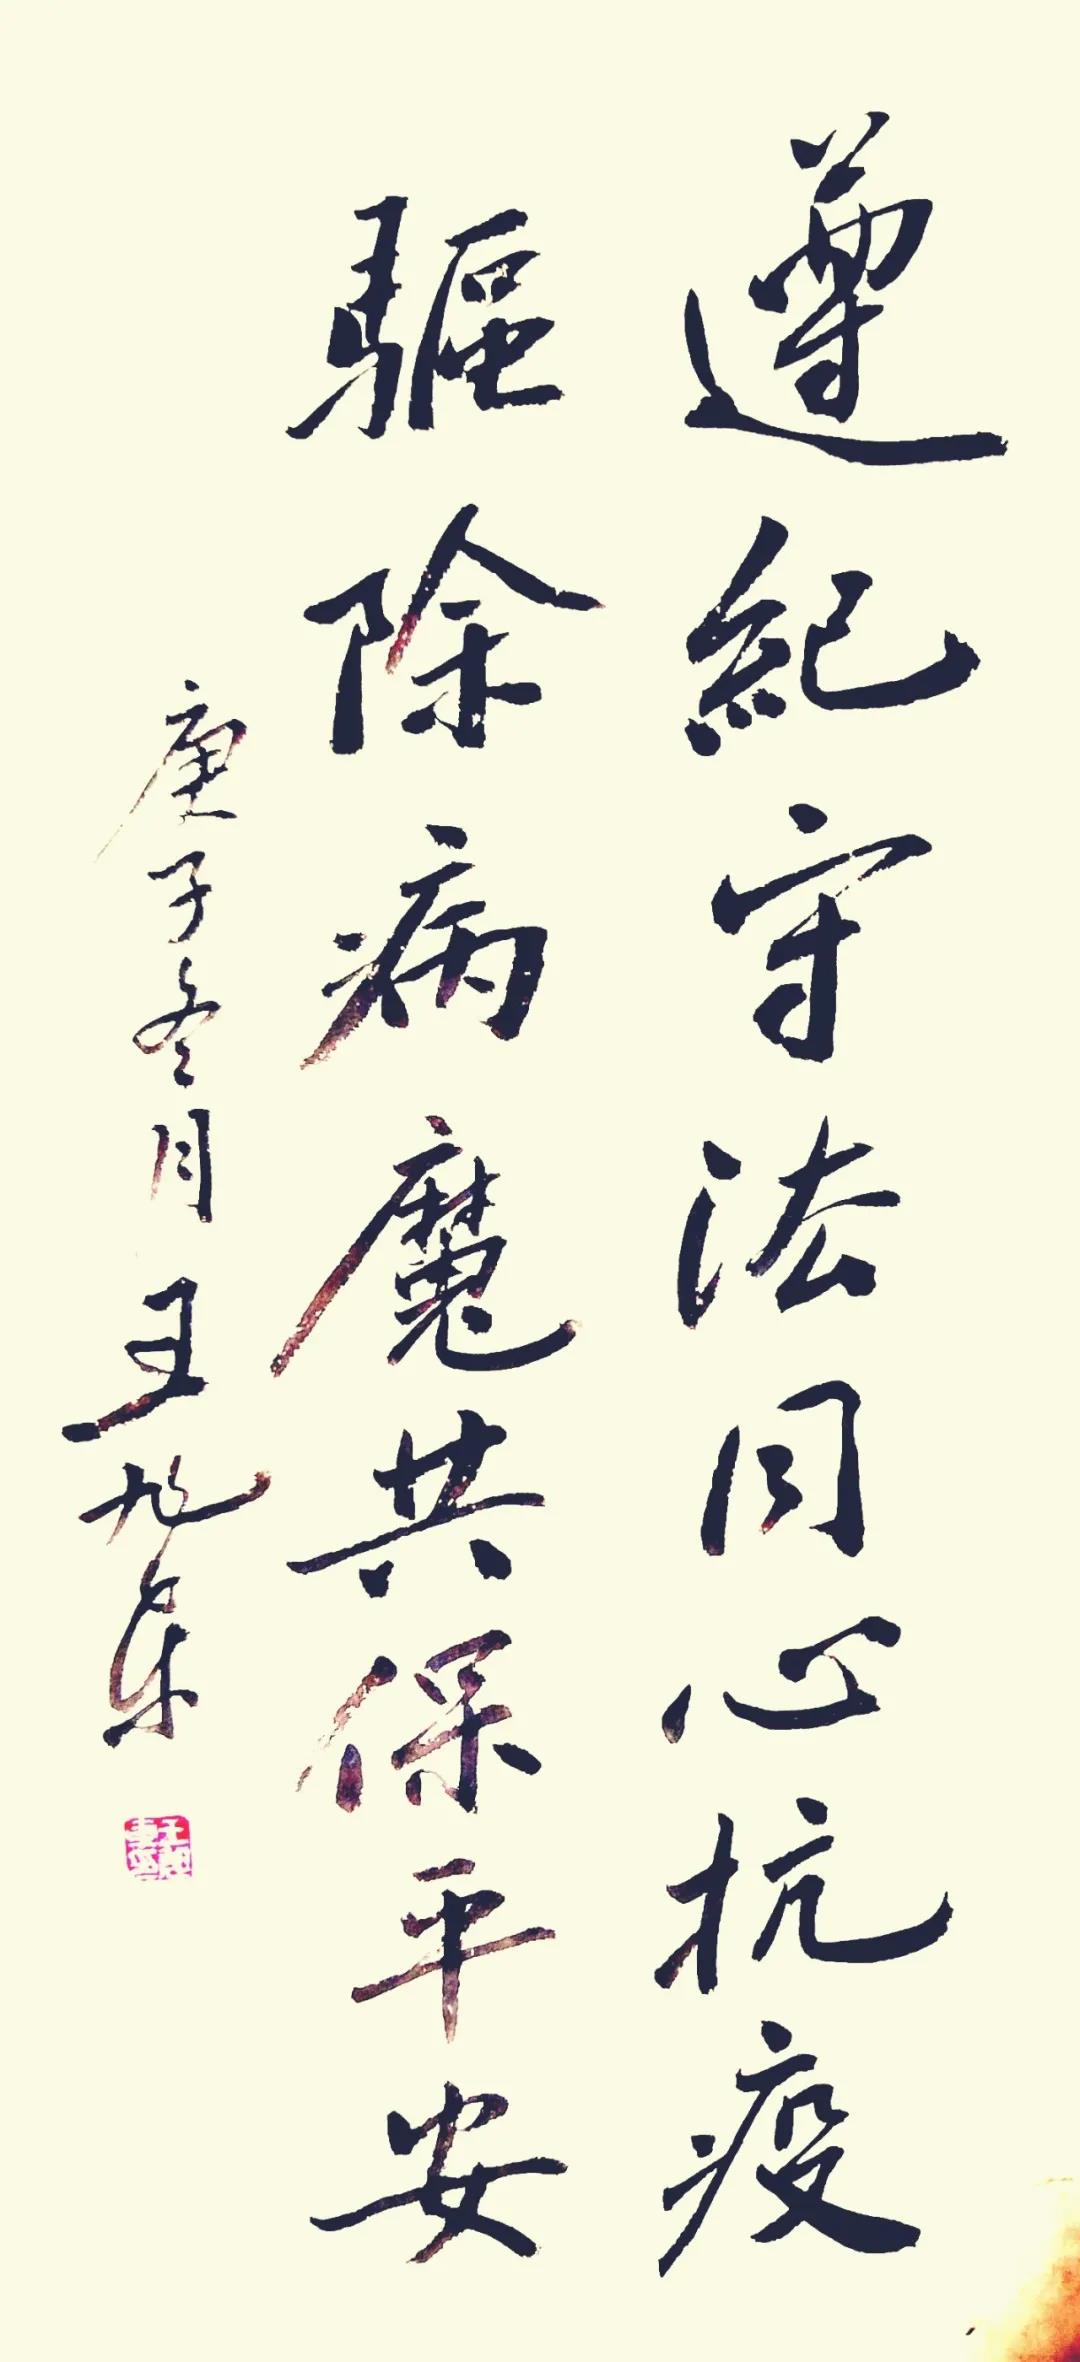 遵紀守法同心抗疫
驅除病魔共保平安
庚子冬月王旭東